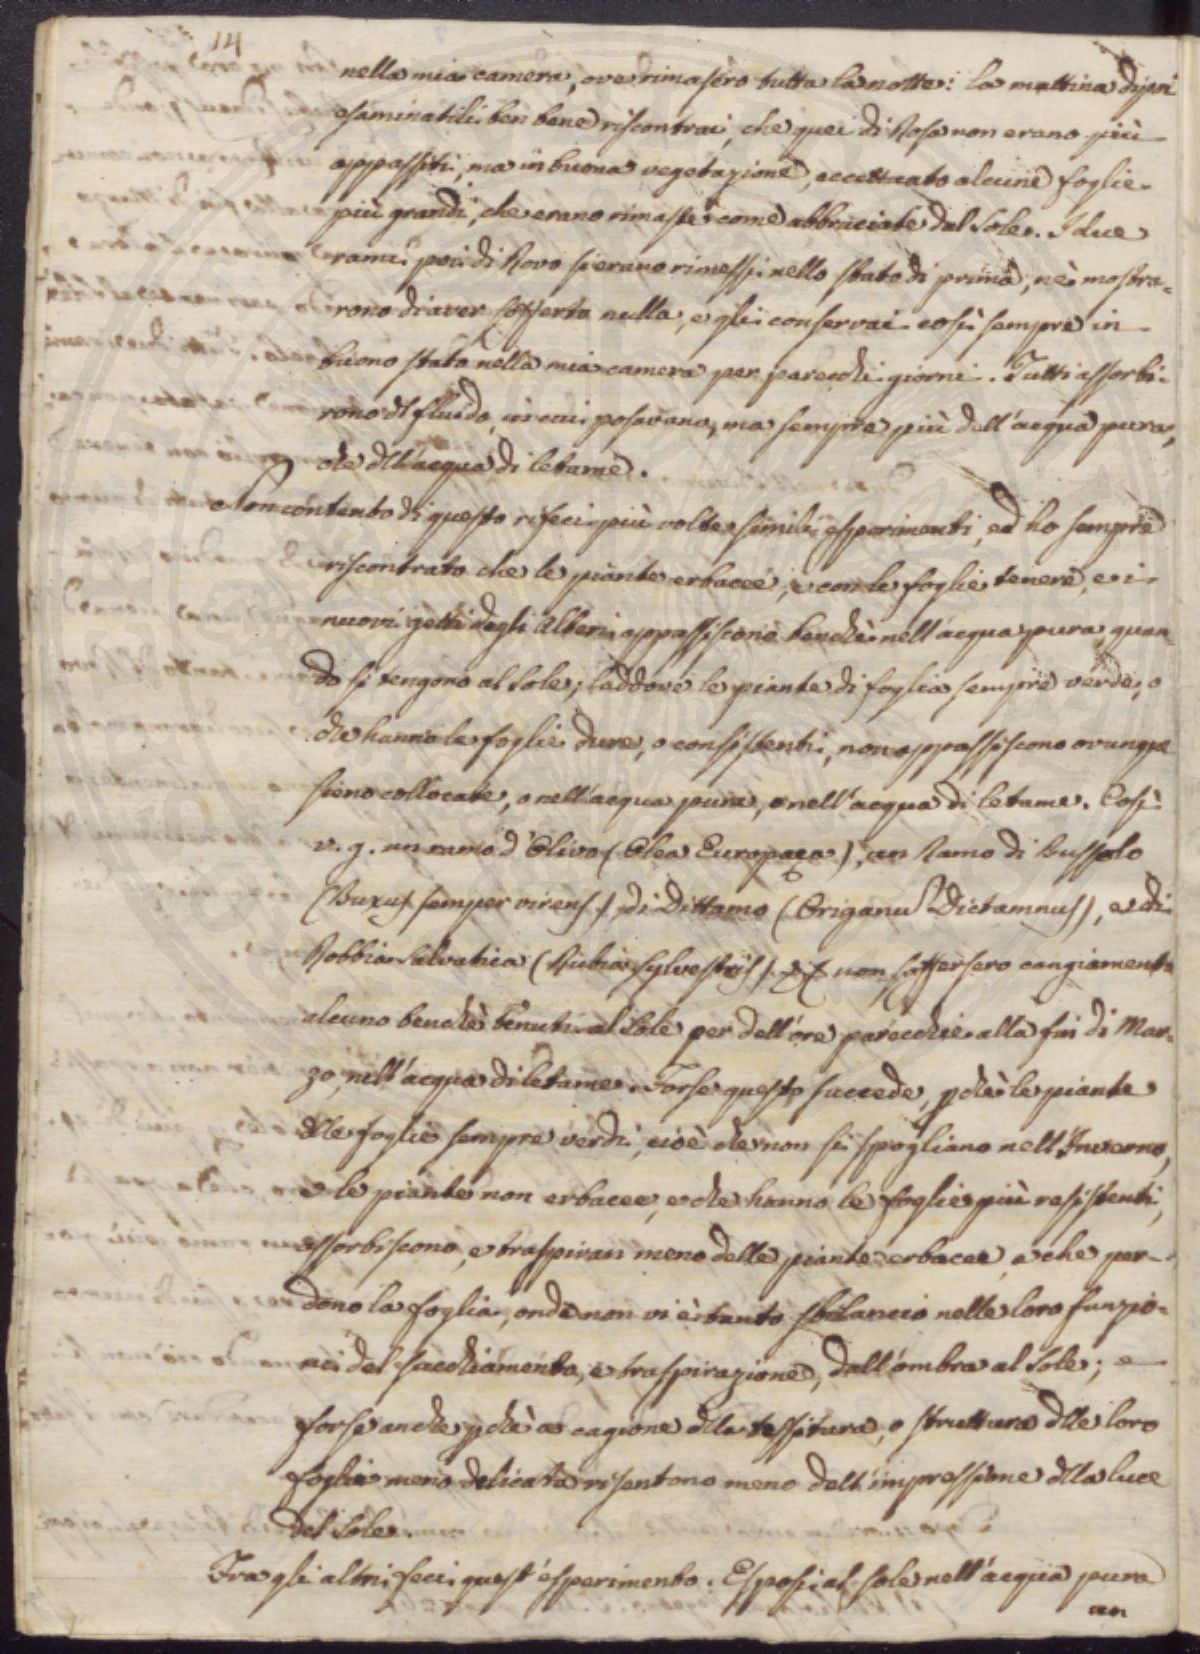 14
nella mia camera, ove rimasero tutta la notte: la mattina di poi
esaminatili ben bene riscontrai, che quei di Rosa non erano più
appassiti, ma in buona vegetazione, eccettuato alcune foglie
più grandi, che erano rimaste come abbruciate dal Sole. I due
rami poi di Rovo si erano rimessi nello stato di prima, nè mostra-
rono di aver sofferto nulla, e gli conservai così sempre in
buono stato nella mia camera per parecchi giorni. Tutti assorbi-
rono il fluido, in cui posavano, ma sempre più dell'acqua pura,
che dell'acqua di letame.
Non contento di questo rifeci più volte simili esperimenti, ed ho sempre
riscontrato che le piante erbacee, e con le foglie tenere, e i
nuovi getti degli Alberi appassiscono benchè nell'acqua pura quan-
do si tengono al Sole; laddove le piante di foglia sempre verde, o
che hanno le foglie dure, o consistenti, non appassiscono ovunque
sieno collocate, o nell'acqua pura, o nell'acqua di letame. Così
v. g. un ramo d'Olivo (Olea Europaea), un Ramo di Bussolo
(Buxus semper virens), di Dittamo (Origanus Dictamnus), e di
Robbia Salvatica (Rubia sylvestris) non soffersero cangiamento
alcuno benchè tenuti al Sole per dell'ore parecchie alla fin di Mar-
zo, nell'acqua di letame. Forse questo succede, pchè le piante
dlle foglie sempre verdi, cioè che non si spogliano nell'Inverno,
e le piante non erbacee, e che hanno le foglie più resistenti,
assorbiscono, e traspiran meno delle piante erbacee, e che per-
dono la foglia, onde non vi è tanto sbilancio nelle loro funzio-
ni del succhiamento, e traspirazione, dall'ombra al Sole; e
forse anche pchè a cagione dlla tessitura, o struttura dlle loro
foglie meno delicata risentono meno dell'impressione dlla luce
del Sole.
Tra gli altri feci quest'esperimento. Esposi al Sole nell'acqua pura
un